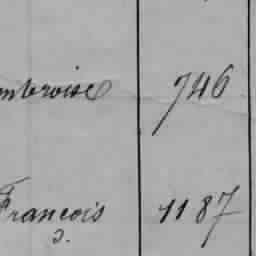 mbroise 746
Francois 1187